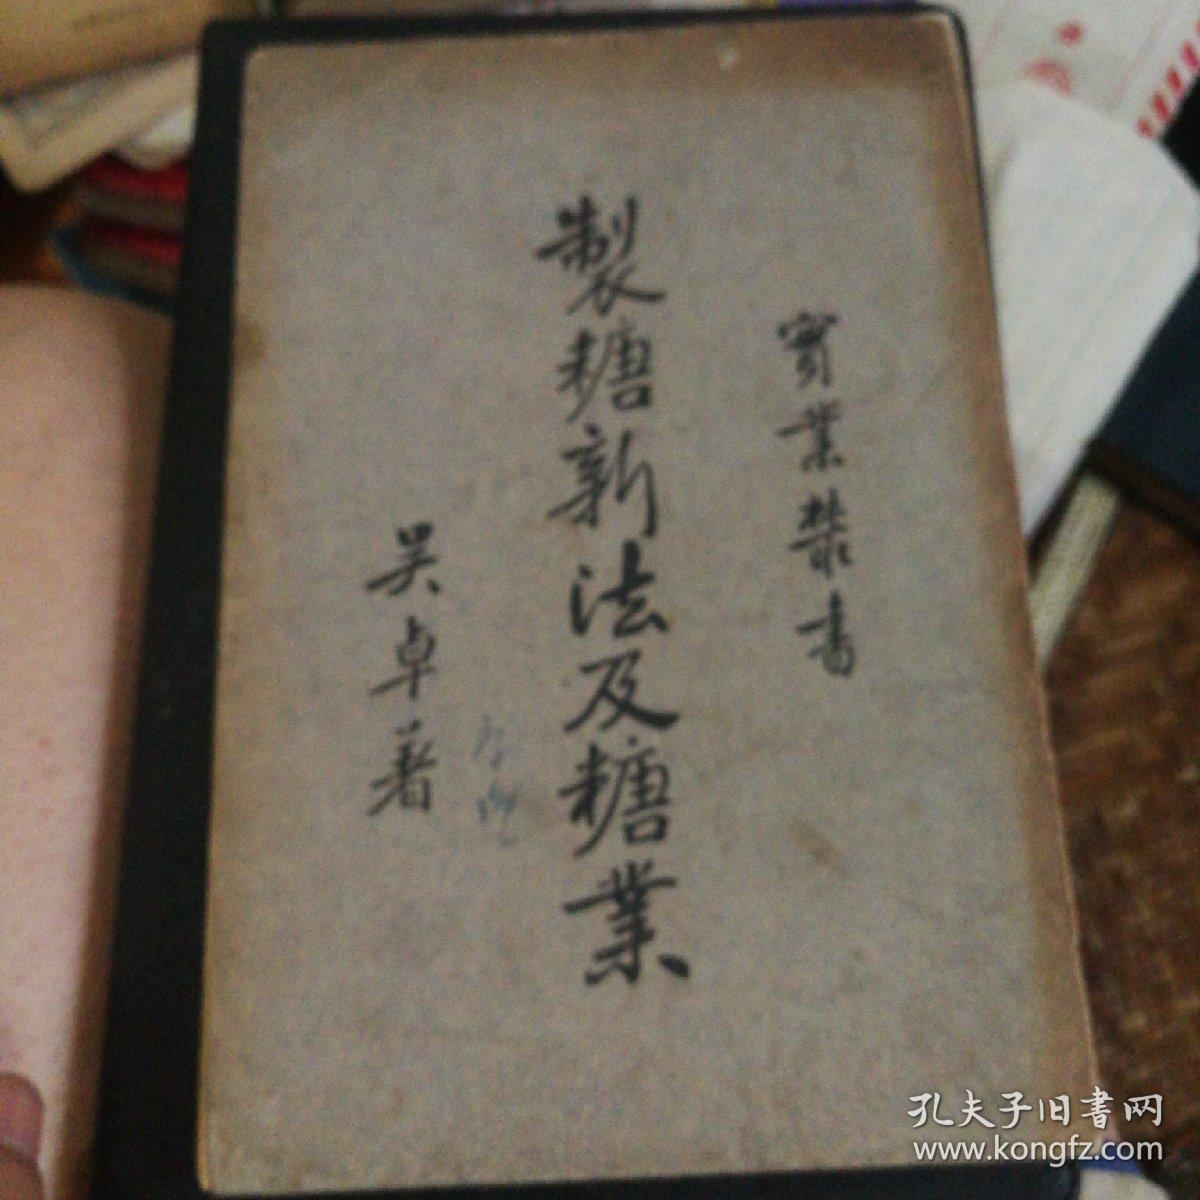 實業叢書
製糖新法及糖業
吴卓著
孔夫子旧書网
www.kongfz.com